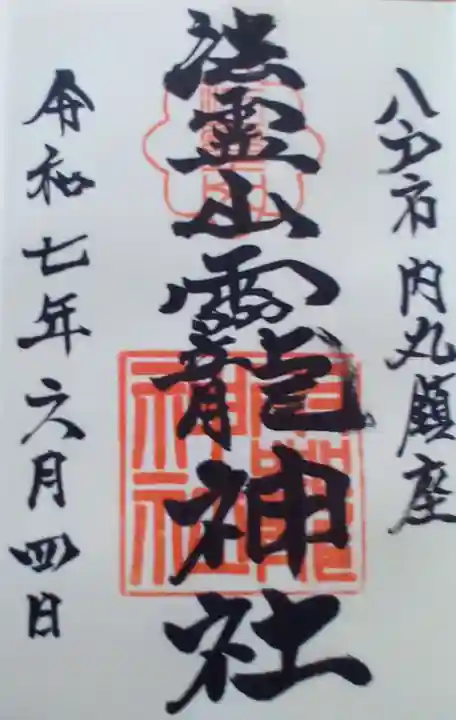 八戸市内丸鎮座
法霊山龗神社
令和七年六月四日
龗神社